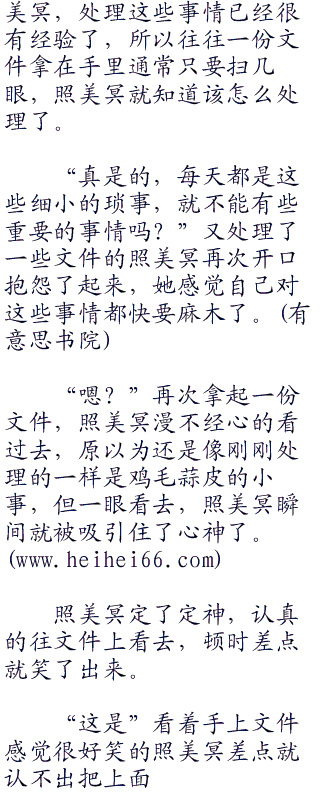 美冥，处理这些事情已经很
有经验了，所以往往一份文
件拿在手里通常只要扫几
眼，照美冥就知道该怎么处
理了。
“真是的，每天都是这
些细小的琐事，就不能有些
重要的事情吗？”又处理了
一些文件的照美冥再次开口
抱怨了起来，她感觉自己对
这些事情都快要麻木了。(有
意思书院)
“嗯？”再次拿起一份
文件，照美冥漫不经心的看
过去，原以为还是像刚刚处
理的一样是鸡毛蒜皮的小
事，但一眼看去，照美冥瞬
间就被吸引住了心神了。
(www.heihei66.com)
照美冥定了定神，认真
的往文件上看去，顿时差点
就笑了出来。
“这是”看着手上文件
感觉很好笑的照美冥差点就
认不出把上面